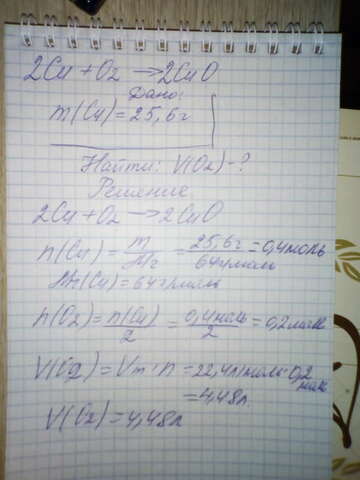 2Cu + O2 → 2CuO
Дано:
m(Cu) = 25,6г
Найти: V(O2) - ?
Решение
2Cu + O2 → 2CuO
n(Cu) = m/Mr = 25,6г/64г/моль = 0,4моль
Mr(Cu) = 64г/моль
n(O2) = n(Cu)/2 = 0,4моль/2 = 0,2моль
V(O2) = Vm · n = 22,4л/моль · 0,2 моль
= 4,48л
V(O2) = 4,48л